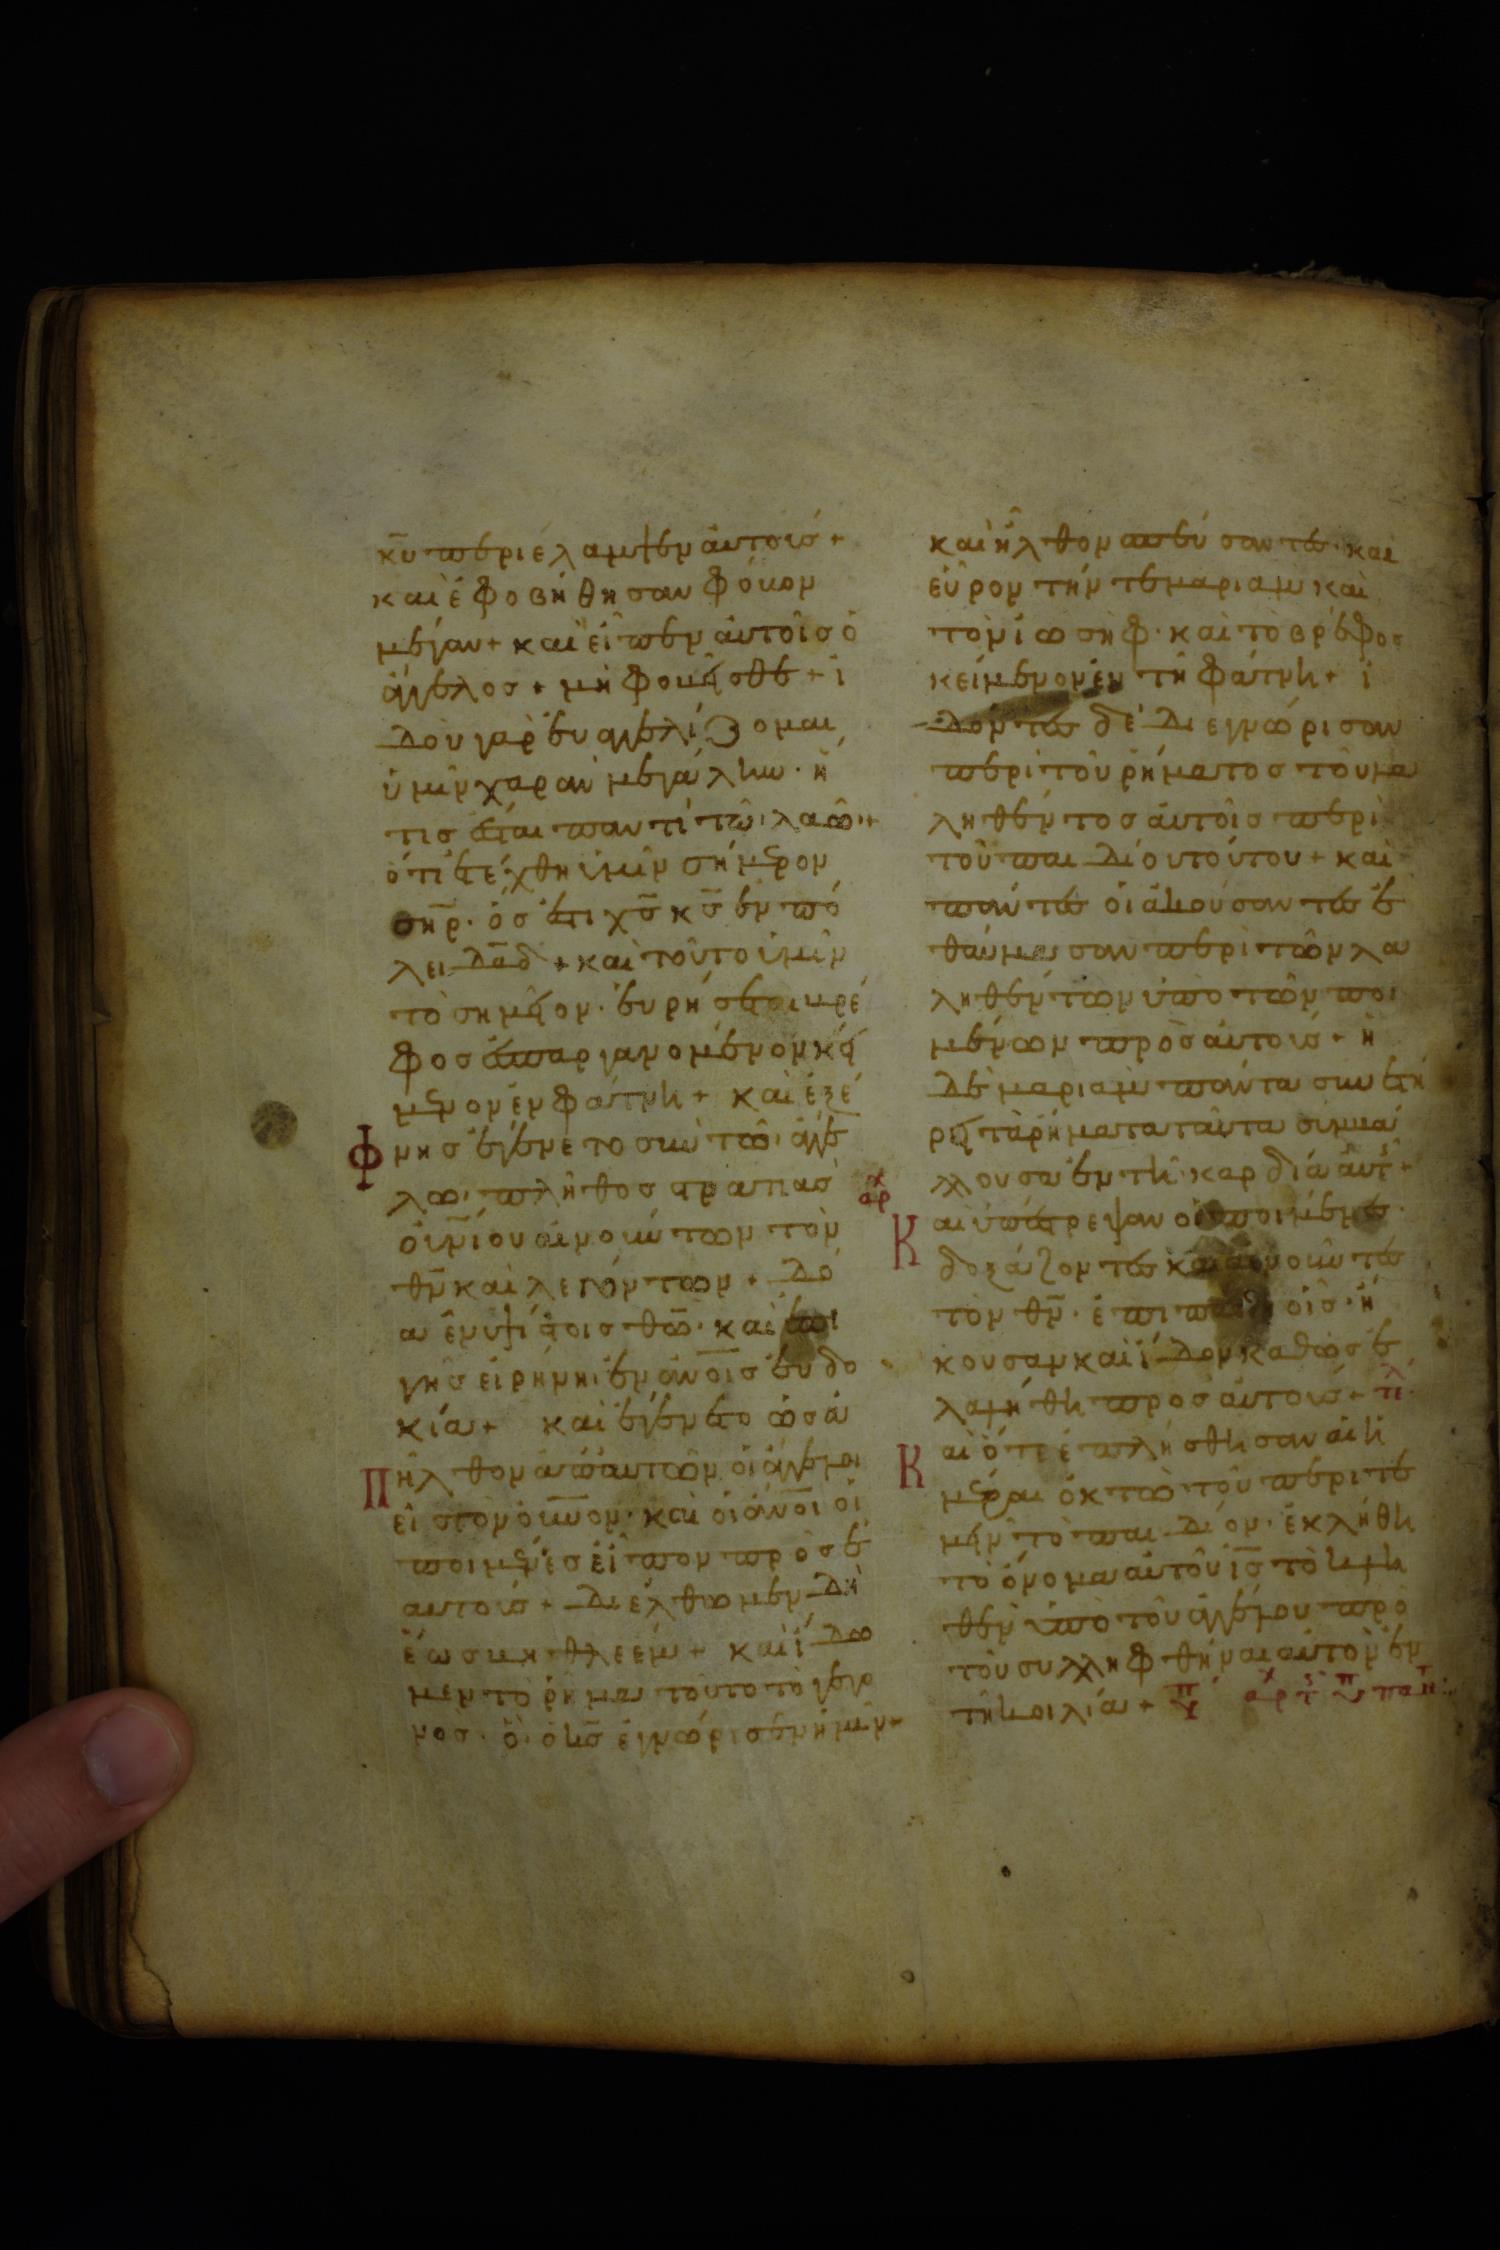 κ̅υ̅ περιέλαμψεν αυτούς +
και εφοβήθησαν φόβον
μέγαν + και είπεν αυτοίς ο
άγγελος + μη φοβείσθε + ϊ
δου γαρ ευαγγελίζομαι
υμίν χαράν μεγάλην · ή
τις έσται παντί τω λαώ · +
ότι ετέχθη υμίν σήμερον
σ̅η̅ρ̅ · ός εστι χ̅ς̅ κ̅ς̅ εν πό
λει δ̅α̅δ̅ + και τούτο υμίν
το σημείον · ευρήσετε βρέ
φος εσπαργανομένον κεί
μενον εν φάτνη + και εξέ
φνης εγένετο συν τω αγγέ
λω · πλήθος στρατιάς
ο̅υ̅ν̅ίου αινούντων τον
θ̅ν̅ και λεγόντων + δό
ξα εν υψίστοις θ̅ω̅ · και επι
γης ειρήνη · εν α̅ν̅ο̅ις ευδο
κία + και εγένετο ως α
πήλθον απ' αυτών οι άγγελοι
εις τον ο̅υ̅ν̅ον · και οι α̅ν̅ο̅ι οι
ποιμένες είπον προς ε
αυτούς + διέλθωμεν δη
έως βηθλεέμ + και ίδω
μεν το ρήμα τούτο το γεγο
νος · ό ο κ̅ς̅ εγνώρισεν ημίν +
και ήλθον σπεύσαντες · και
εύρον την τε μαριάμ και
τον ϊωσήφ · και το βρέφος
κείμενον εν τη φάτνη + ϊ
δόντες δε διεγνώρισαν
περί του ρήματος του λα
ληθέντος αυτοίς περί
του παιδίου τούτου + και
πάντες οι ακούσαντες ε
θαύμασαν περί των λα
ληθέντων υπό των ποι
μένων προς αυτούς + η
δε μαριάμ πάντα συνετή
ρει τα ρήματα ταύτα συμβά
λλουσα εν τη καρδία αυτης +
αρχ
και υπέστρεψαν οι ποιμένες
δοξάζοντες και αινούντες
τον θ̅ν̅ · επι πάσιν οίς · ή
κουσαν και ίδον καθώς ε
λαλήθη προς αυτούς +
και ότε επλήσθησαν αι η
μέραι οκτώ του περιτε
μείν το παιδίον · εκλήθη
το όνομα αυτού ι̅ς̅ το κλη
θέν υπό του αγγέλου προ
του συλληφθήναι αυτόν εν
τη κοιλία +